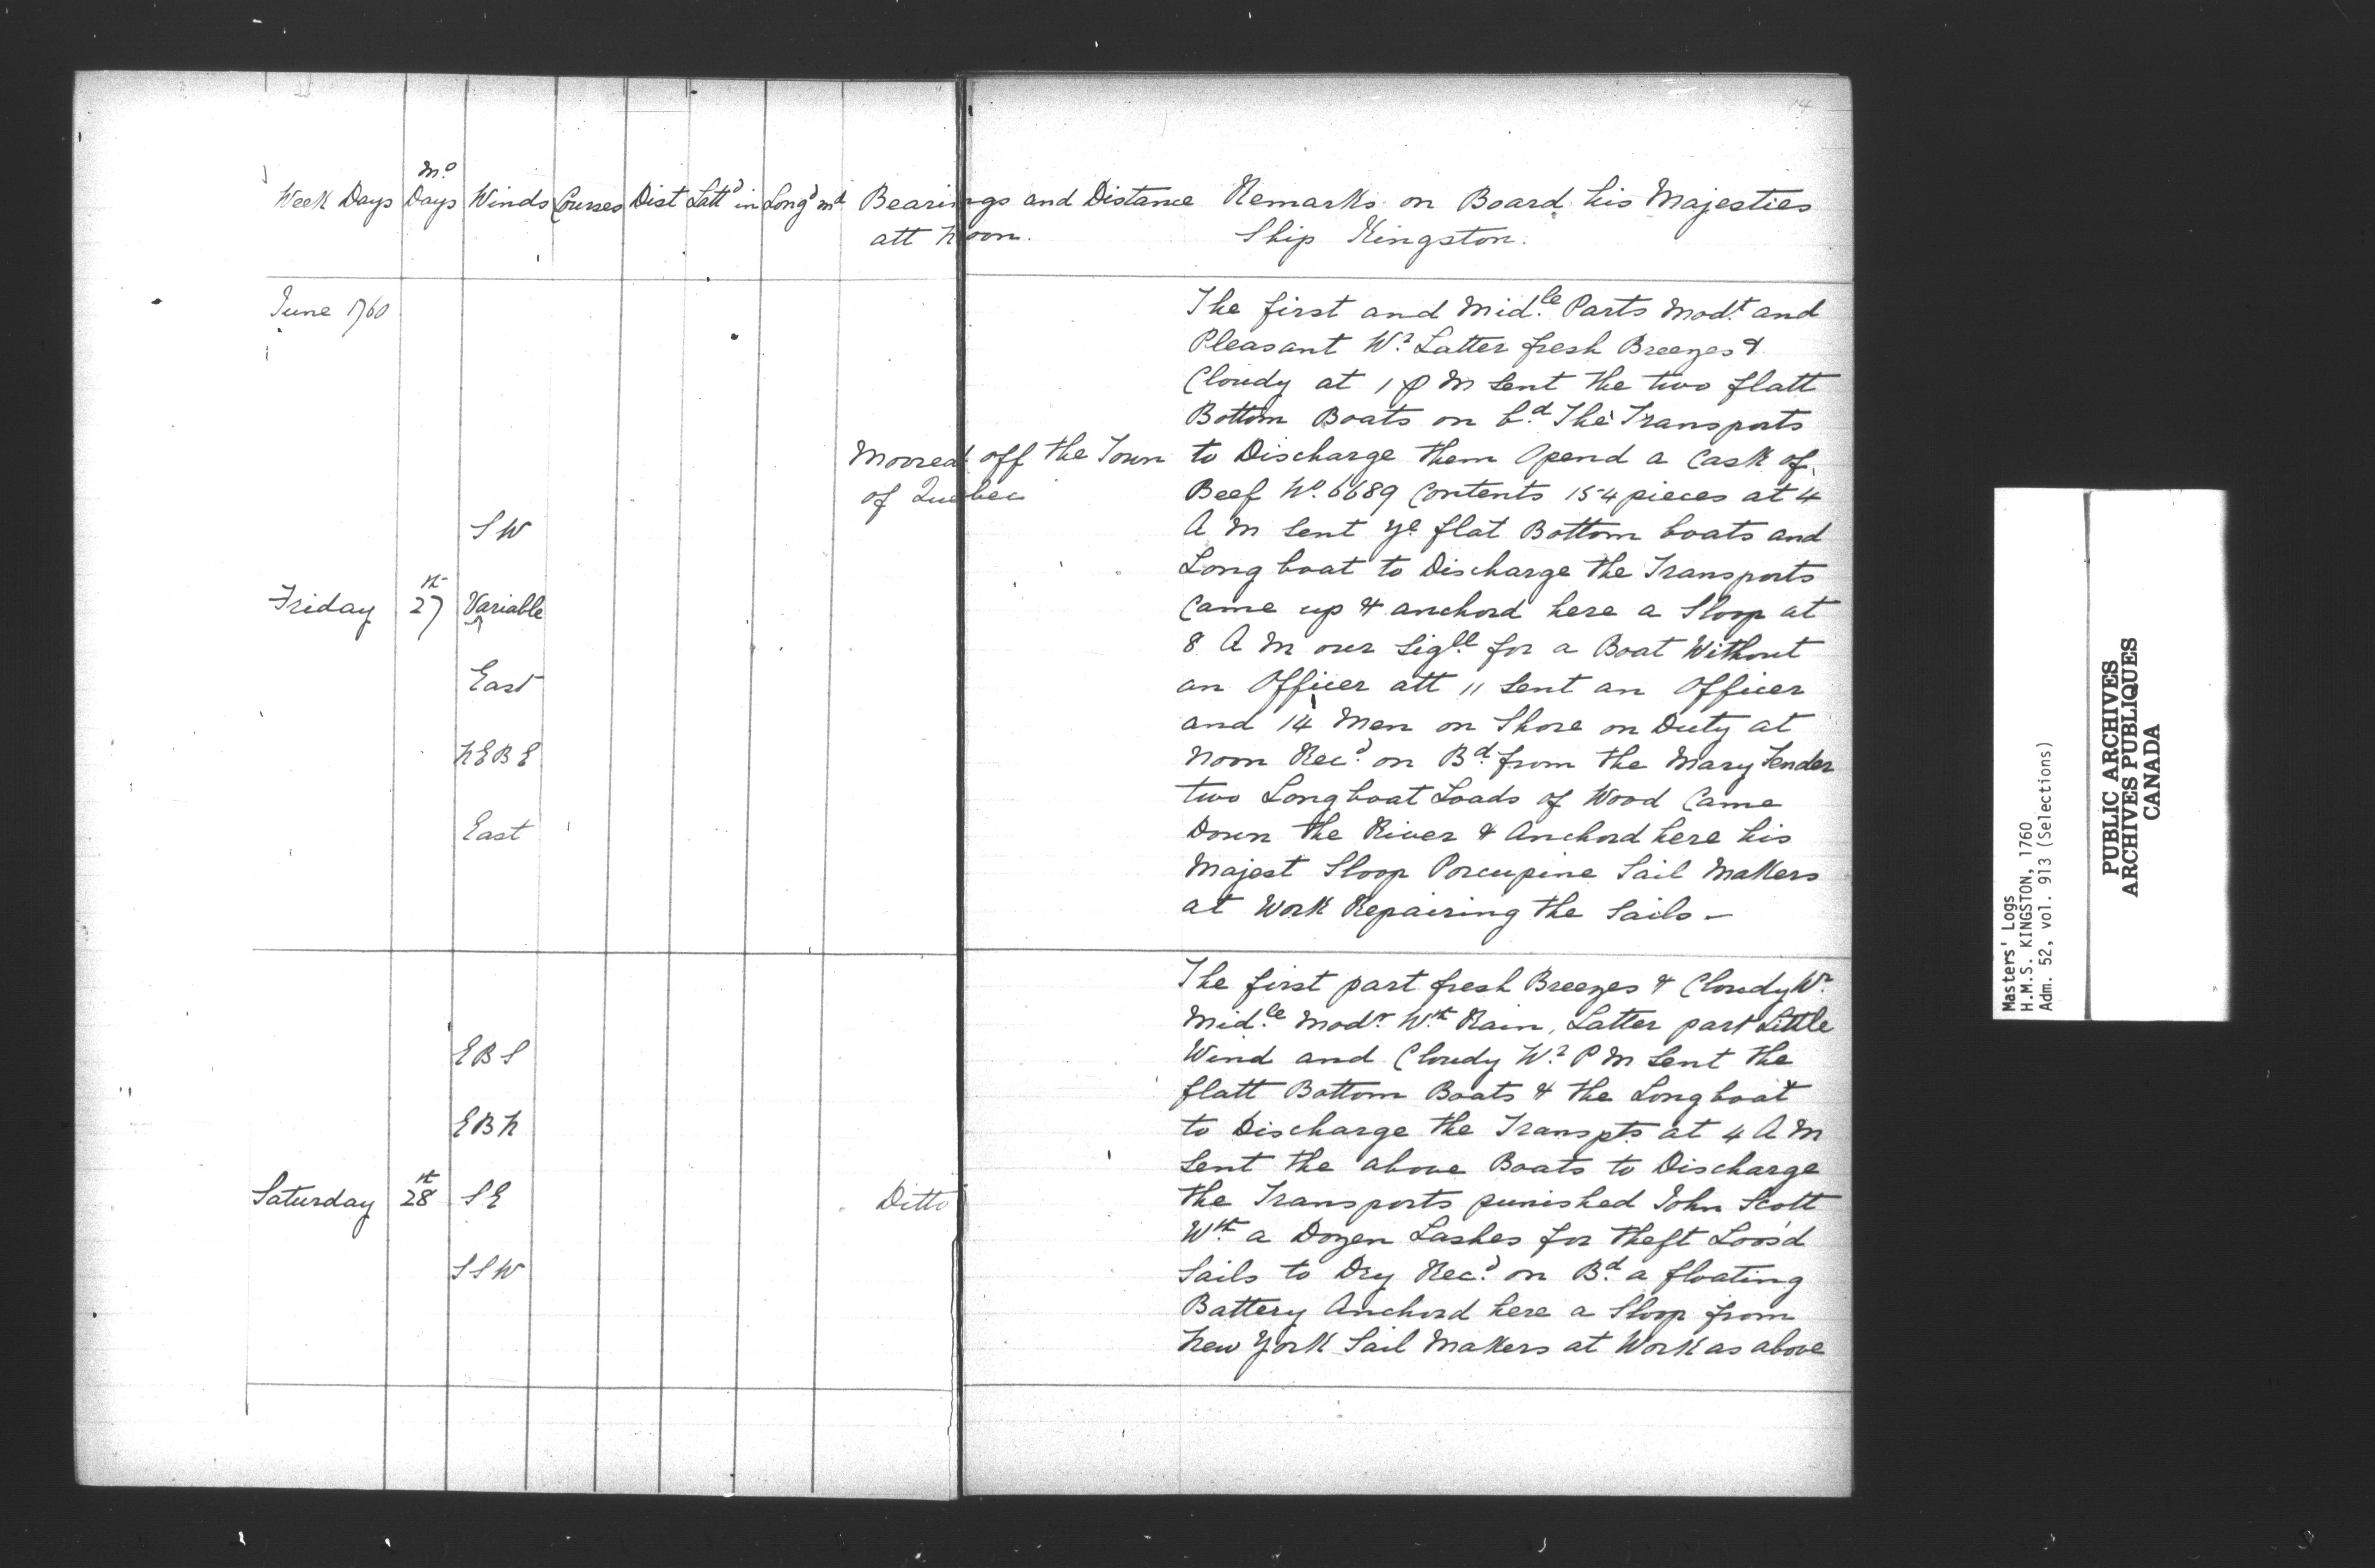 14
Week Days Mo. Days Winds Courses Dist Lattd in Longd Bearings and Distance att Noon.
Remarks on Board his Majesties
Ship Kingston.
June 1760
The first and Midle Parts Modt and
Pleasant Wr Latter fresh Breezes &
Cloudy at 1 P M sent the two flatt
Bottom Boats on bd The Transports
Moored off the Town
of Quebec
to Discharge them Opend a Cask of
Beef No. 6689 Contents 154 pieces at 4
S W
A M sent ye flat Bottom boats and
Long boat to Discharge the Transports
Friday 27th Variable
Came up & anchord here a Sloop at
8 A M our Sigll for a Boat Without
East
an Officer att 11 sent an Officer
and 14 Men on Shore on Duty at
N E B E
Noon Recd on Bd from the Mary Tender
two Longboat Loads of Wood Came
East
Down the River & Anchord here his
Majest Sloop Porcupine Sail Makers
at Work Repairing the Sails —
The first part fresh Breezes & Cloudy Wr
Midle Modr Wth Rain, Latter part Little
E B S
Wind and Cloudy Wr P M sent the
flatt Bottom Boats & the Longboat
E B N
to Discharge the Transpts at 4 A M
sent the above Boats to Discharge
Saturday 28th S E Ditto
the Transports punished John Scott
Wth a Dozen Lashes for theft Loos'd
S S W
Sails to Dry Recd on Bd a floating
Battery Anchord here a Sloop from
New York Sail Makers at Work as above
Masters' Logs
H.M.S. KINGSTON, 1760
Adm. 52, vol. 913 (Selections)
PUBLIC ARCHIVES
ARCHIVES PUBLIQUES
CANADA